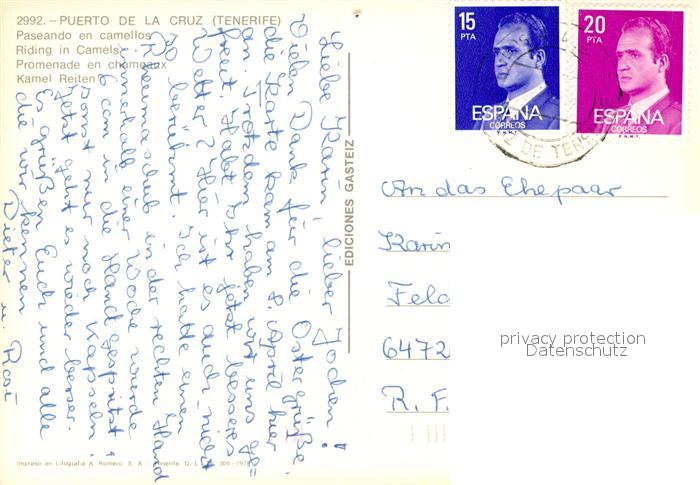 2992.-PUERTO DE LA CRUZ (TENERIFE)
Paseando en camellos
Riding in Camels
Promenade en chameaux
Kamel Reiten
Liebe Karin, lieber Jochen!
Vielen Dank für die Ostergrüße.
die Karte kam am 8. April hier
an. Trotzdem haben wir uns ge-
freut. Habt Ihr jetzt besseres
Wetter? Hier ist es auch nicht
so berühmt. Ich hatte einen
Rheumaschub in der rechten Hand
innerhalb einer Woche wurde
6 x in die Hand gespritzt,
sonst nur noch Kapseln
jetzt geht es wieder besser.
Es grüßen Euch und alle
die wir kennen
Dieter u. Rosi
EDICIONES GASTEIZ
15
PTA
ESPAÑA
CORREOS
F.N.M.T.
20
PTA
ESPAÑA
CORREOS
F.N.M.T.
DE TENE
An das Ehepaar
Karin
Feld
6472
R. F.
privacy protection
Datenschutz
Impreso en Litografía A. Romero, S. A. - Tenerife D. L. 309 - 197